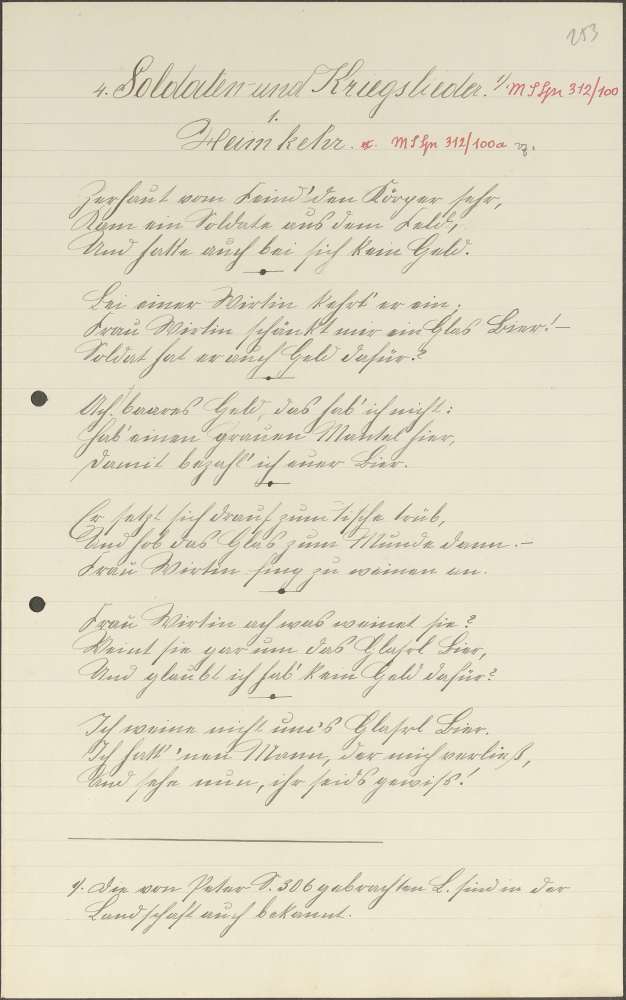 253
4. Soldaten- und Kriegslieder. 1/. MS Spr 312/100
1.
Heimkehr. MS Spr 312/100a
Zerhaut vom Feind' den Körper sehr,
Kam ein Soldate aus dem Feld,
Und hatte auch bei sich kein Geld.
Bei einer Wirtin kehrt er ein;
Frau Wirtin schänkt mir ein Glas Bier! –
Soldat hat er auch Geld dafür?
Ach baares Geld, das hab' ich nicht:
Hab' einen grauen Mantel hier,
Damit bezahl' ich euer Bier.
Er setzt sich drauf zum Tische trüb,
Und hob das Glas zum Munde dann. –
Frau Wirtin fing zu weinen an.
Frau Wirtin ach was weinet sie?
Weint sie gar um das Glaserl Bier,
Und glaubt ich hab' kein Geld dafür?
Ich weine nicht um's Glaserl Bier.
Ich hatt' 'nen Mann, der mich verließ,
Und sehe nun, ihr seids gewiss!
1/. Die von Peter S. 306 gebrachten L. sind in der
Landschaft auch bekannt.